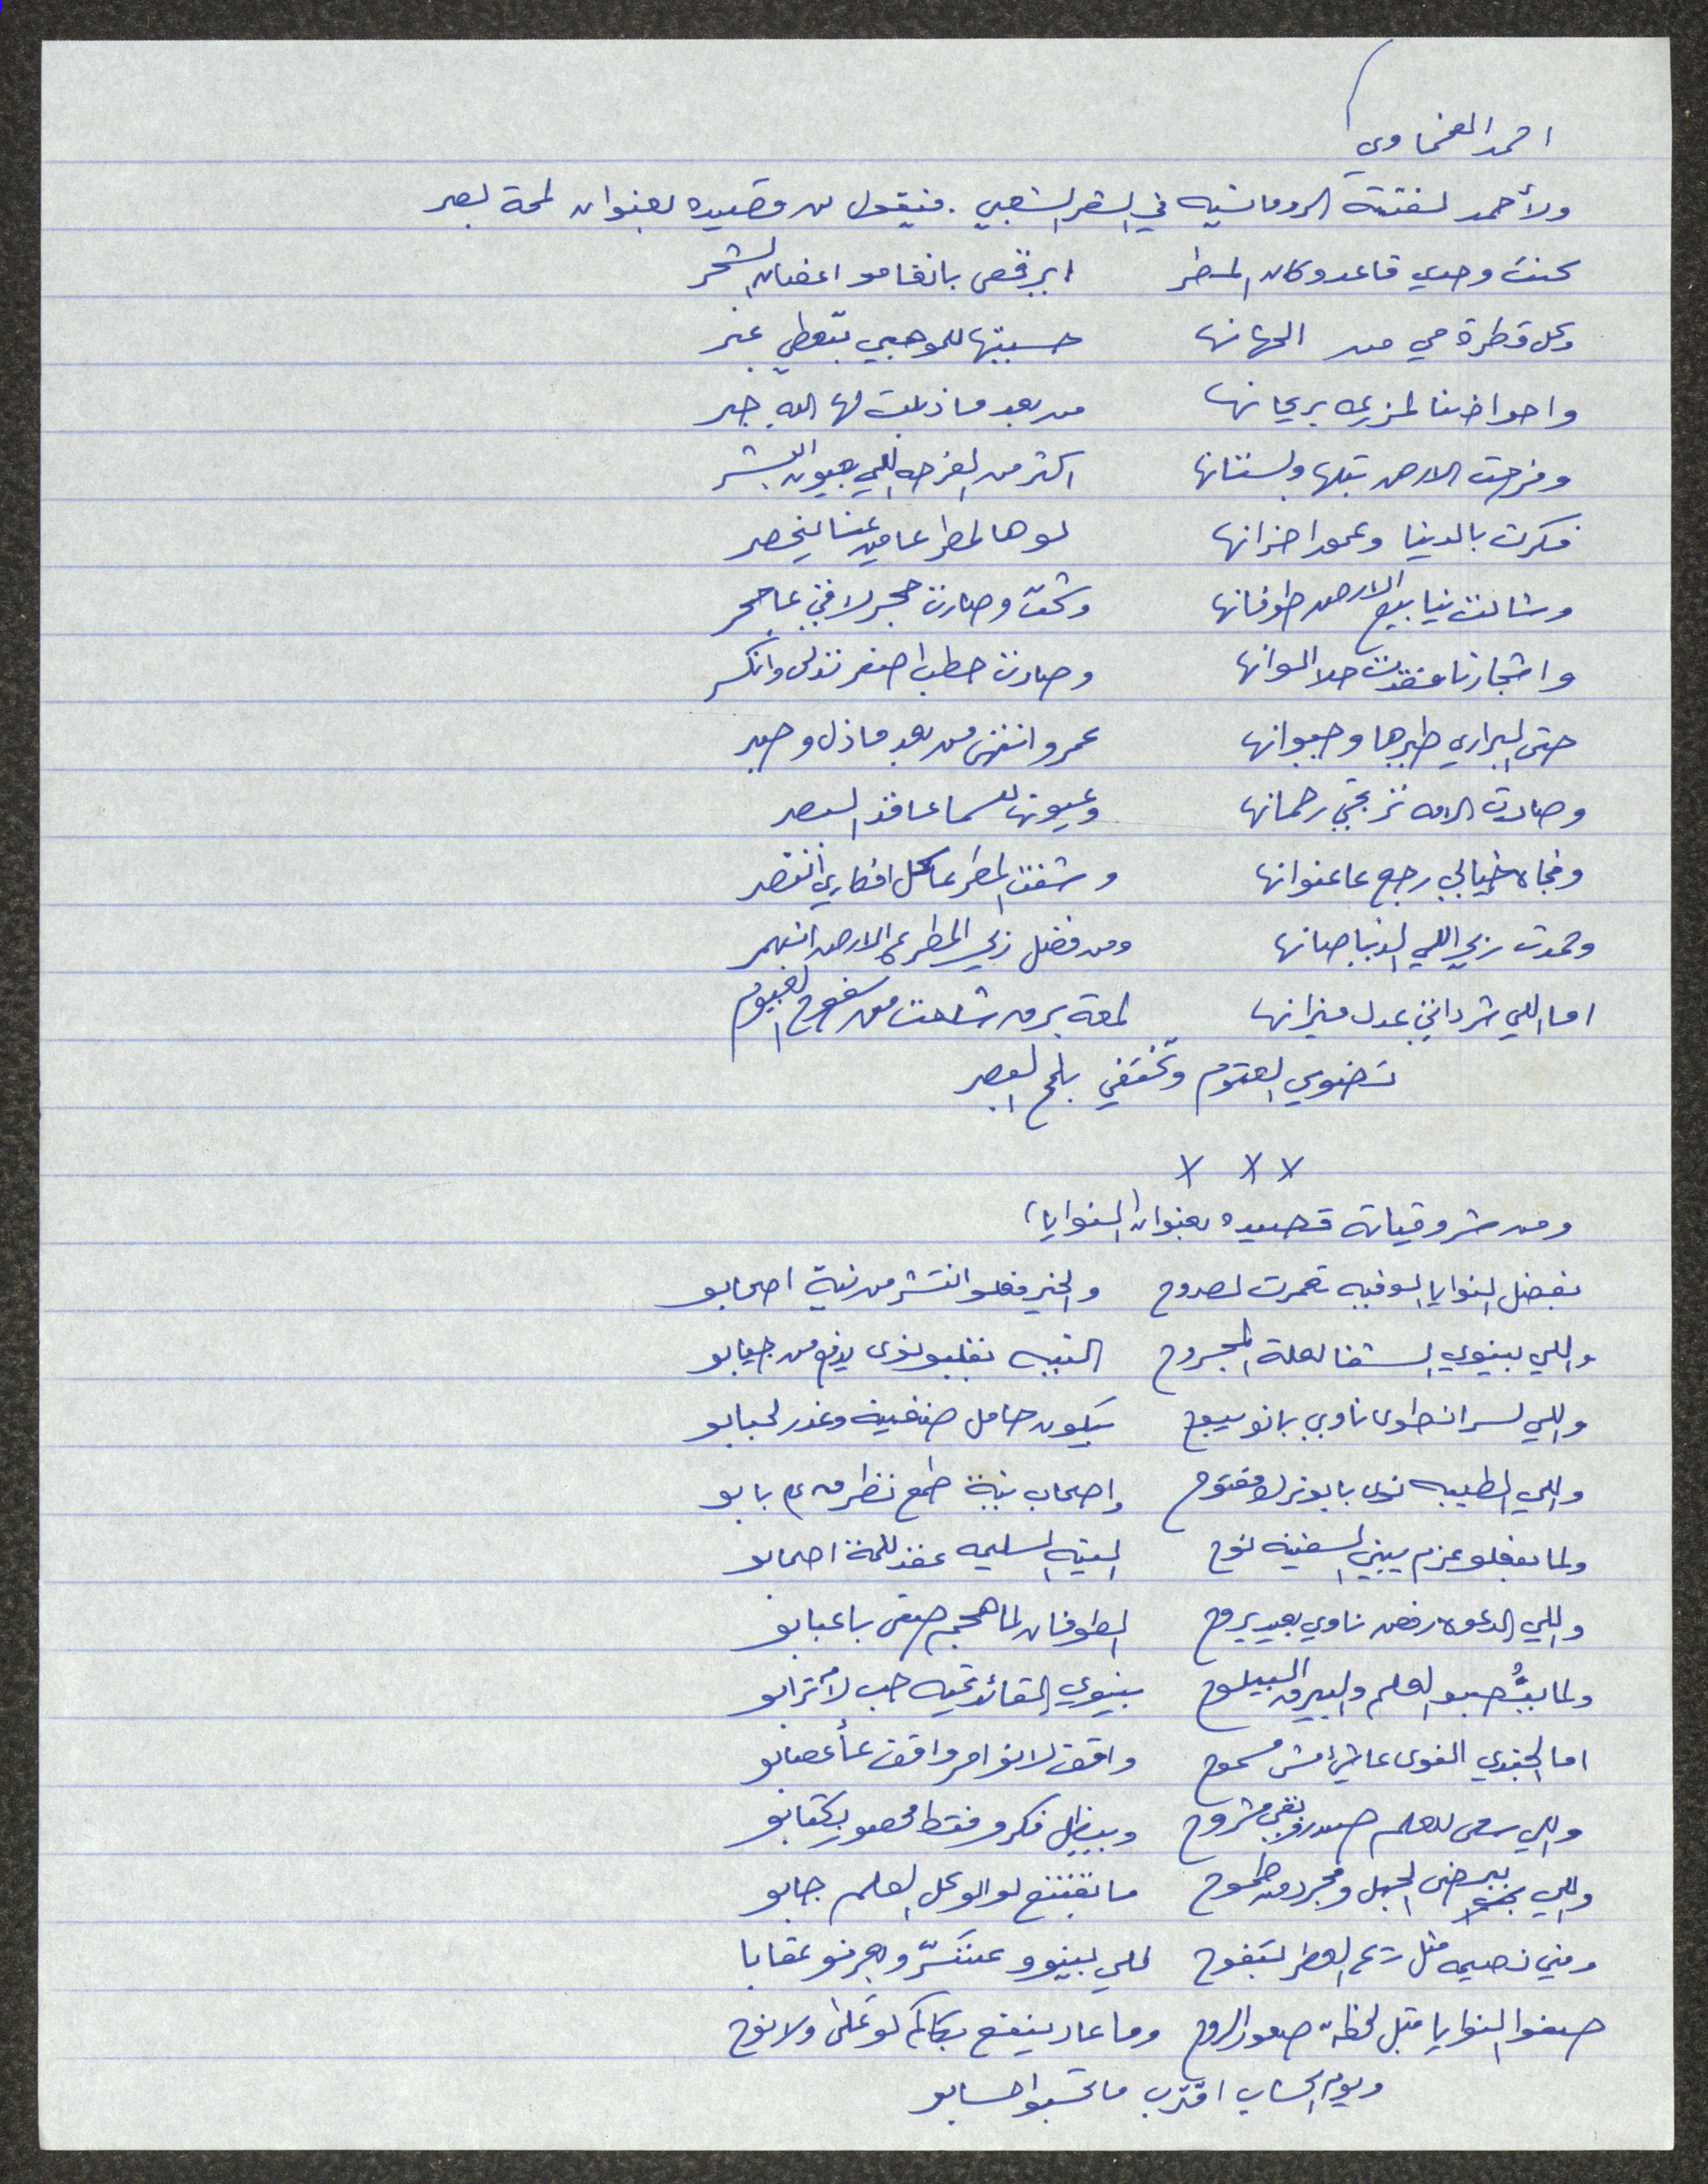 احمد
ولأحمد لفتته الرومانسيه في الشعر الشعبي . فيقول من قصيده بعنوان لمحة بصر
كنت وحدي قاعد وكان المطر ايرقص بانغامو اغصان الشجر
وكل قطرة مي من الحانها حسبتها للموهبي بتعطي عبر
واحواضنا المزركه بريحانها من بعد ما ذبلت لها الله جبر
وفرحت الارض بتلها وبستانها اكتر من الفرحه اللي بعيون البشر
فكرت بالدنيا وعمور احزانها لو هالمطر عامين عنا ينحصر
وشالت ينابيع الارض طوفانها وشحت وصارت حجر لافي عا حجر
واشجارنا فقدت حلا الوانها وصارت حطب اصفر تدلى وانكسر
حتى البراري طيرها وحيوانها عمرو انتهى من بعد ما ذل وصبر
وصارت الامه ترتجي رحمانها وعيونها للسما عا فقد البصر
وفجاه خيالي رجع عا عنوانها وشفت المطر عا كل افكاري انتصر
وحمدت ربي اللي الدنيا صانها ومن فضل ربي المطر ع الارض انهمر
اما اللي شردلني عدل ميزانها لمعة برق شلعت من سفوح الغيوم
تضوي العتوم وتختفي بلمح البصر
x x x
ومن شروقياته قصيده بعنوان (النوايا)
بفضل النوايا الوفيه تعمرت لصروح والخير فعلو انتشر من نية اصحابو
واللي بينوي الشفا لعلة المجروح الطيبه بقلبو نوى يدفع من جيابو
واللي لسر انطوى ناوي بانو يبوح بيكون حامل ضغينه وغدر لحبابو
واللي الطيبه نوى بابو ترك مفتوح واصحاب نية طمع تنظر من ع بابو
ولما بفعلو عزم يبني السفينه نوح النيه السليمه عقد للمة اصحابو
واللي الدعوه رفض ناوي بعيد يروح الطوفان لما هجم صفى باعبابو
ولما بصحبو العلم والبيرق البيلوح بينوي القائد تحيه حب لأترابو
اما الجندي القوى عاشي مش مسموح واقف لاوامر واقف عأعصابو
واللي سعى للعلم صدرو بقي مشروح وبيظل فكرو فقط محصور بكتابو
واللي بيرضى الجهل ومجرد من طموح ما بقتنع لو الو كل العلم جابو
ومني نصيحه مثل ريح العطر بتفوح للي بينوو عنتشرّ وبعرفو عقابا
صفوا النوايا قبل لحظة صعود الروح وما عاد ينفع بكاكم لو على ولا نوح
ويوم الحساب اقترب ما تحسبوا حسابو